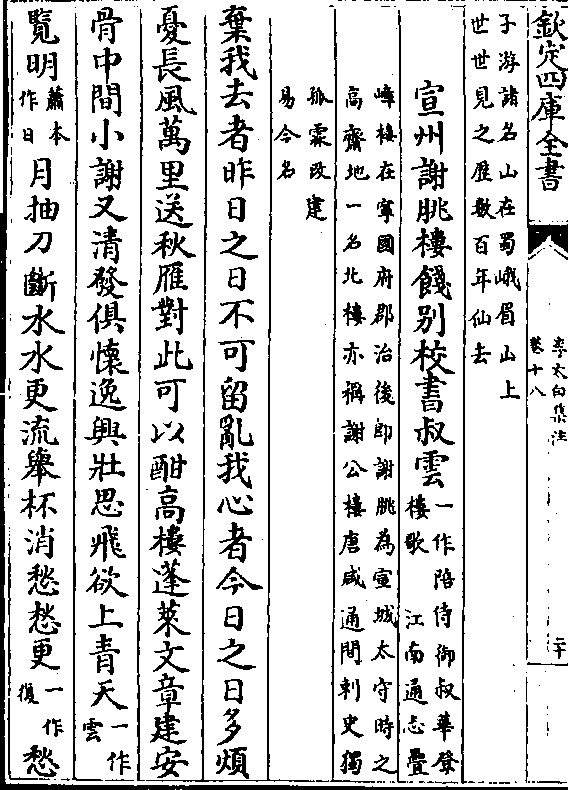 欽定四庫全書
李太白集注
卷十八
二十
子游諸名山在蜀峨眉山上
世世見之歴數百年仙去
宣州謝朓樓餞别校書叔雲
一作陪侍御叔華登
樓歌 江南通志疊
嶂樓在寧國府郡治後即謝朓為宣城太守時之
高齋地一名北樓亦稱謝公樓唐咸通間刺史獨
孤霖改建
易今名
棄我去者昨日之日不可留亂我心者今日之日多煩
憂長風萬里送秋雁對此可以酣高樓蓬萊文章建安
骨中間小謝又清發俱懷逸興壯思飛欲上青天一作雲
覽明蕭本作日月抽刀斷水水更流舉杯消愁愁更一作復愁